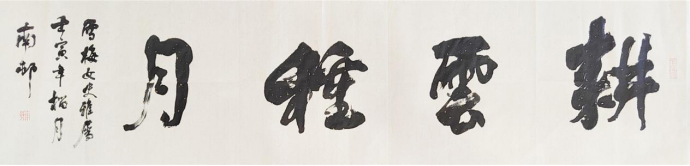 耕雲種月
雪梅女史雅屬
壬寅年榴月
南邨